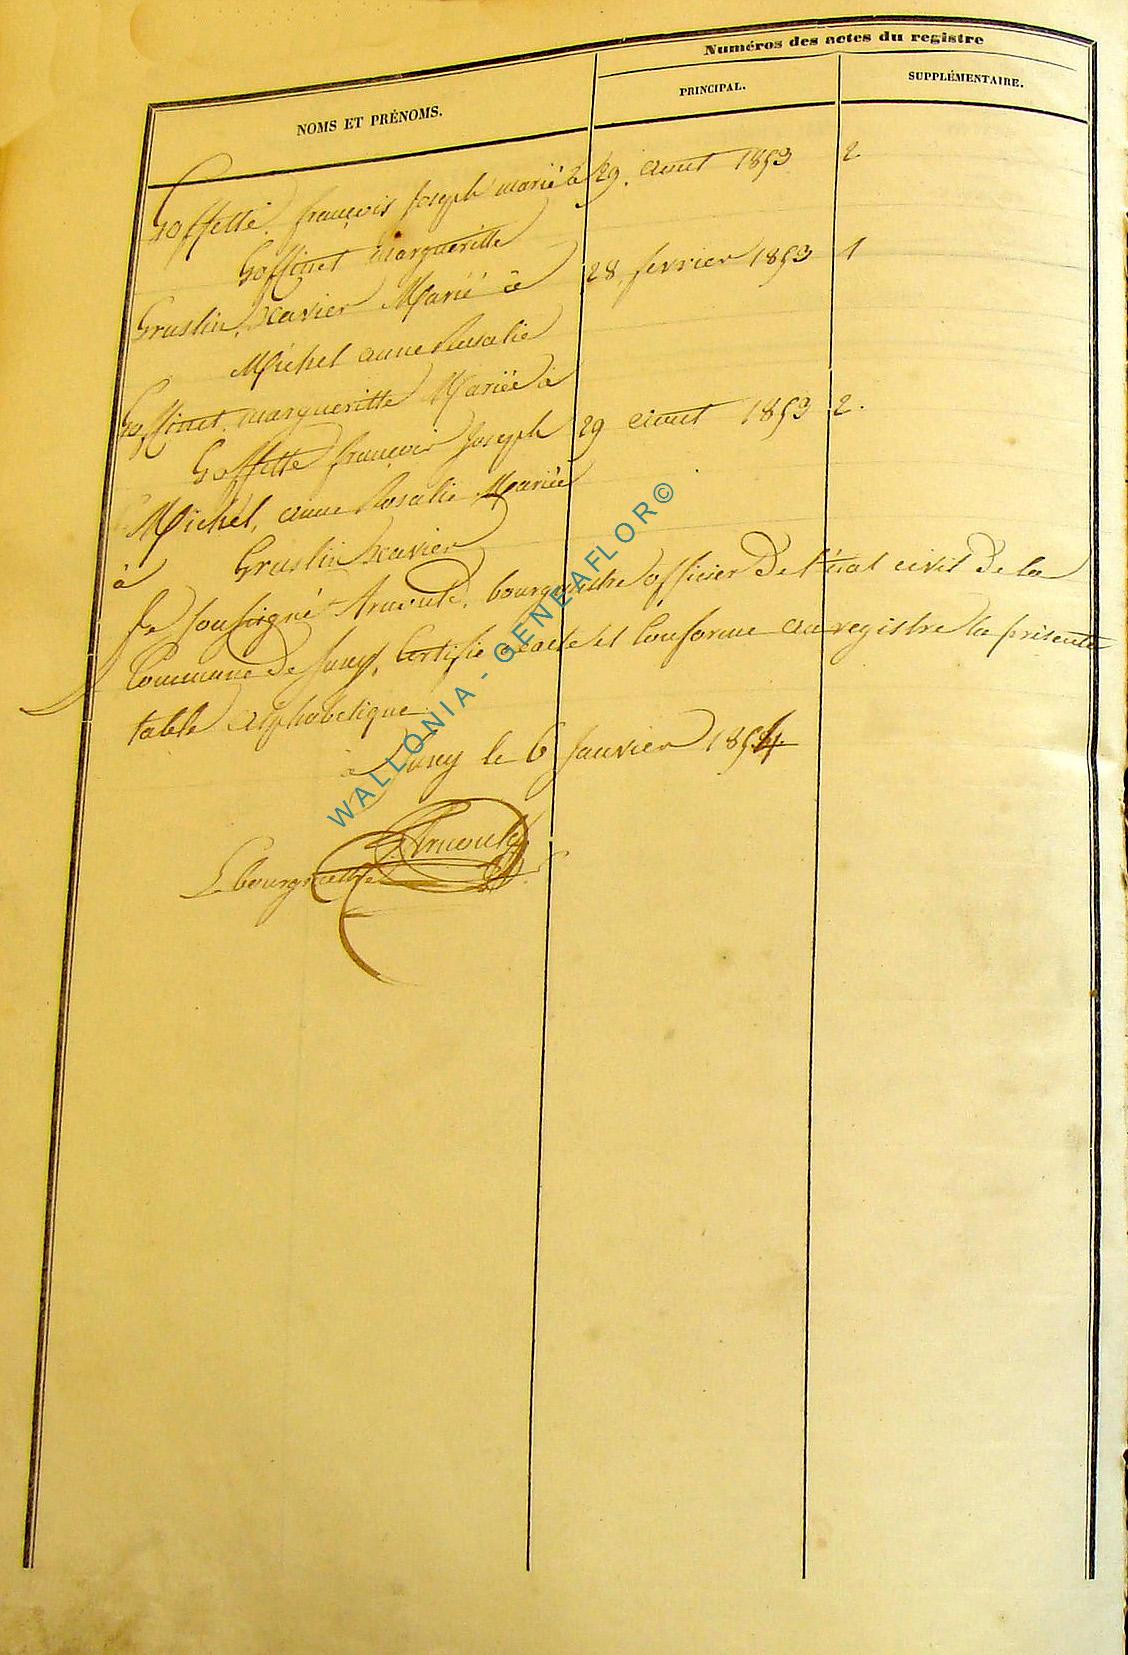 Numéros des actes du registre
NOMS ET PRÉNOMS.
PRINCIPAL.
SUPPLÉMENTAIRE.
Goffette. françois Joseph marié à 29. aout 1853 2
Goffinet Margueritte
Gruslin, Xavier Marié à 28, fevrier 1853 1
Michel anne Rosalie
Goffinet, marguerittte Mariée à
Goffette françois Joseph 29 aout 1853 2.
Michel, anne Rosalie, Mariée
à Gruslin Xavier
Je Soussigné Arnould, bourgmestre officier De l'état civil De la
Commune De Suxy, Certifie exacte et Conforme au registre la présente
table alphabetique.
à Suxy le 6 Janvier 1854
Le bourgmestre
Arnould
WALLONIA - GENEAFLOR©